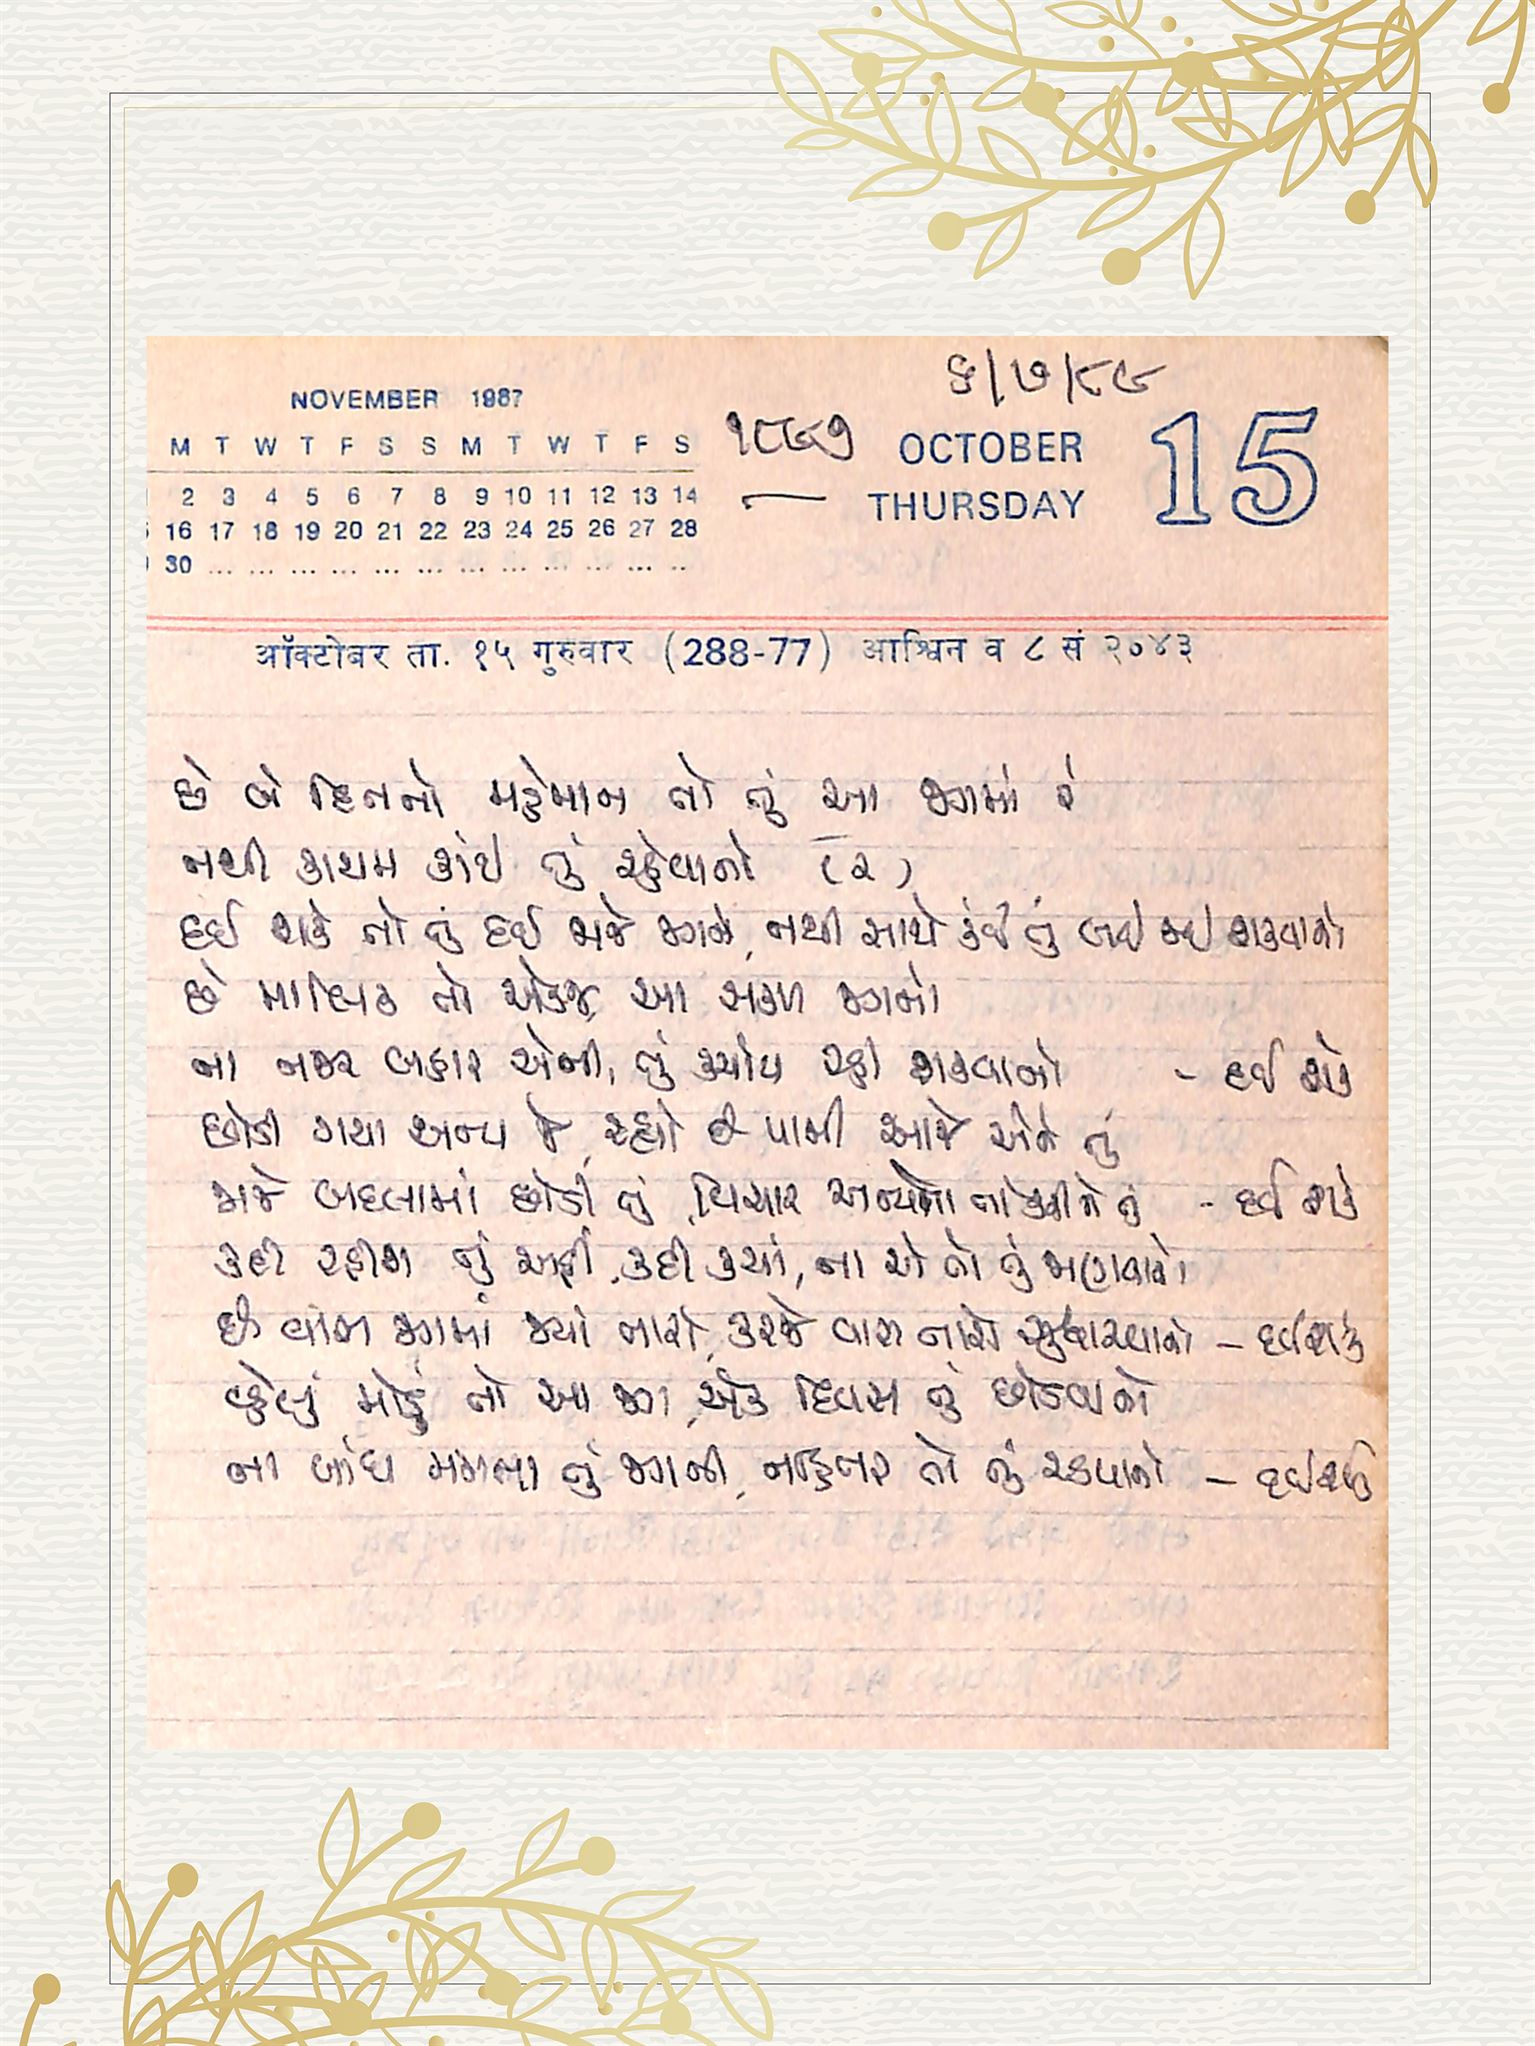 NOVEMBER 1987
M T W T F S S M T W T F S
2 3 4 5 6 7 8 9 10 11 12 13 14
16 17 18 19 20 21 22 23 24 25 26 27 28
30 ... ... ... ... ... ... ... ... ... ... ... ...
૬/૭/૮૯
૧૮૬૧
OCTOBER 15
THURSDAY
ऑक्टोबर ता. १५ गुरुवार (288-77) आश्विन व ८ सं २०४३
છે બે દિનનો મહેમાન તો તું આ જગમાં રે
નથી કાયમ કાંઈ તું રહેવાનો (૨)
દઈ શકે તો તું દઈ જાજે જગને, નથી સાથે કંઈ તું લઈ જઇ શકવાનો
છે માલિક તો એકજ આ સકળ જગનો
ના નજર બહાર એની, તું ક્યાંય રહી શકવાનો - દઈ શકે
છોડી ગયા અન્ય જે, રહ્યો છે પામી આજે એને તું
જાજે બદલામાં છોડી તું, વિચાર અન્યનો તો કરીને તું - દઈ શકે
કદી રહીશ તું અહીં, કદી ક્યાં, ના એ તો તું જાણવાનો
છે વાંક જગમાં જ્યાં તારો, કરજે વાસ તારો સુધારવાનો - દઈ શકે
વહેલું મોડું તો આ જગ, એક દિવસ તું છોડવાનો
ના બાંધ મમતા તું જગની, નહિતર તો તું રડવાનો - દઈ શકે